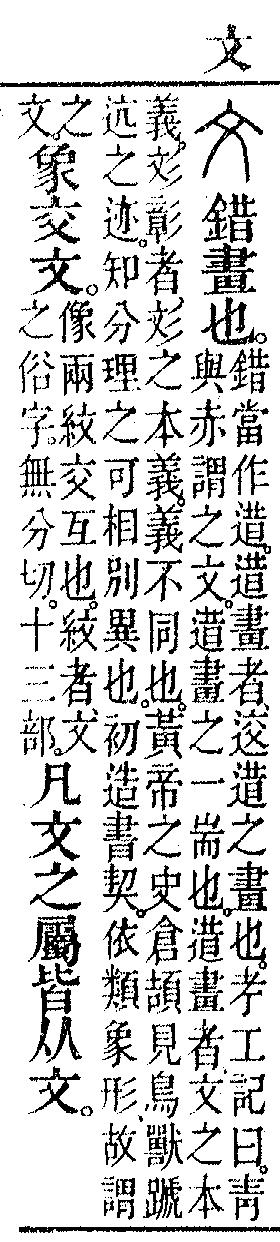 文
文錯畫也。錯當作逪。逪畫者、䢒逪之畫也。考工記曰。靑
與赤謂之文。逪畫之一耑也。逪畫者、文之本
義。彣彰者、彣之本義。義不同也。黃帝之史倉頡見鳥獸蹏
迒之迹。知分理之可相別異也。初造書契。依類象形、故謂
之
文。
象交文。像兩紋交互也。紋者、文
之俗字。無分切。十三部。
凡文之屬皆从文。